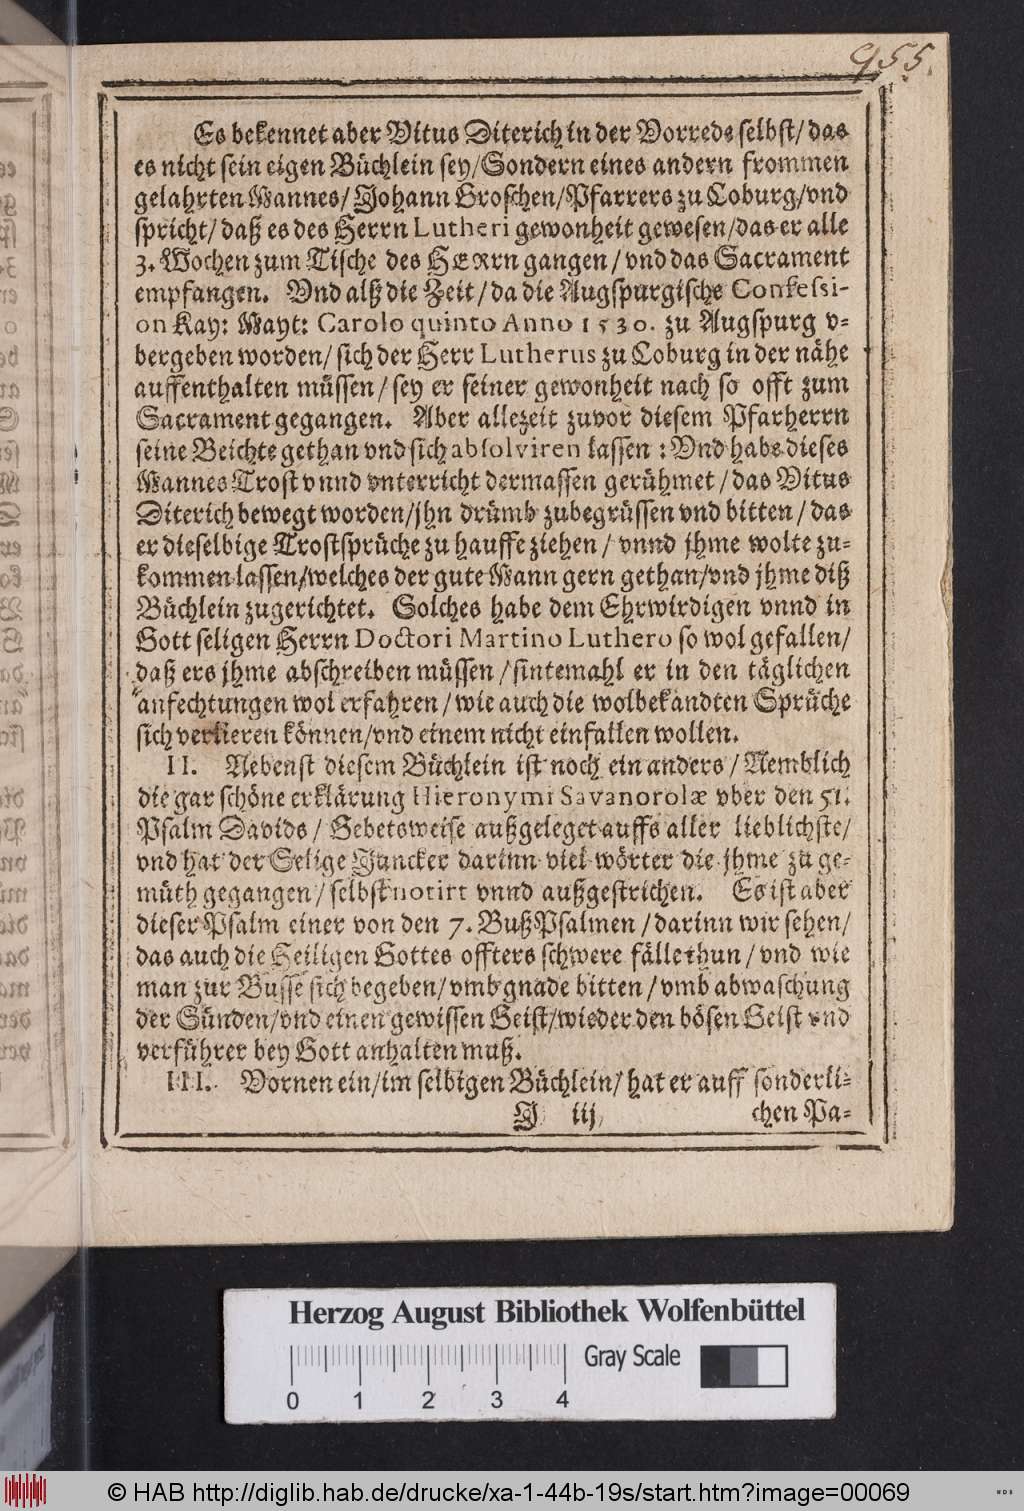 955.
Es bekennet aber Vitus Diterich in der Vorrede selbst/ das
es nicht sein eigen Büchlein sey/ Sondern eines andern frommen
gelahrten Mannes/ Johann Groschen/ Pfarrers zu Coburg/ vnd
spricht/ daß es des Herrn Lutheri gewonheit gewesen/ das er alle
3. Wochen zum Tische des HERRn gangen/ vnd das Sacrament
empfangen. Vnd alß die Zeit/ da die Augspurgische Confessi-
on Kay: Mayt: Carolo quinto Anno 1530. zu Augspurg v-
bergeben worden/ sich der Herr Lutherus zu Coburg in der nähe
auffenthalten müssen/ sey er seiner gewonheit nach so offt zum
Sacrament gegangen. Aber allezeit zuvor diesem Pfarherrn
seine Beichte gethan vnd sich absolviren lassen: Vnd habe dieses
Mannes Trost vnnd vnterricht dermassen gerühmet/ das Vitus
Diterich bewegt worden/ jhn drümb zubegrüssen vnd bitten/ das
er dieselbige Trostsprüche zu hauffe ziehen/ vnnd jhme wolte zu-
kommen lassen/ welches der gute Mann gern gethan/ vnd jhme diß
Büchlein zugerichtet. Solches habe dem Ehrwirdigen vnnd in
Gott seligen Herrn Doctori Martino Luthero so wol gefallen/
daß ers jhme abschreiben müssen/ sintemahl er in den täglichen
"anfechtungen wol erfahren/ wie auch die wolbekandten Sprüche
sich verlieren können/ vnd einem nicht einfallen wollen.
II. Nebenst diesem Büchlein ist noch ein anders/ Nemblich
die gar schöne erklärung Hieronymi Savanorolæ vber den 51.
Psalm Davids/ Gebetsweise außgeleget auffs aller lieblichste/
vnd hat der Selige Juncker darinn viel wörter die jhme zu ge-
müth gegangen/ selbst notirt vnnd außgestrichen. Es ist aber
dieser Psalm einer von den 7. BußPsalmen/ darinn wir sehen/
das auch die Heiligen Gottes offters schwere fälle thun/ vnd wie
man zur Busse sich begeben/ vmb gnade bitten/ vmb abwaschung
der Sünden/ vnd einen gewissen Geist/ wieder den bösen Geist vnd
verführer bey Gott anhalten muß.
III. Vornen ein/ im selbigen Büchlein/ hat er auff sonderli-
J iij chen Pa-
Herzog August Bibliothek Wolfenbüttel
Gray Scale
0 1 2 3 4
© HAB http://diglib.hab.de/drucke/xa-1-44b-19s/start.htm?image=00069